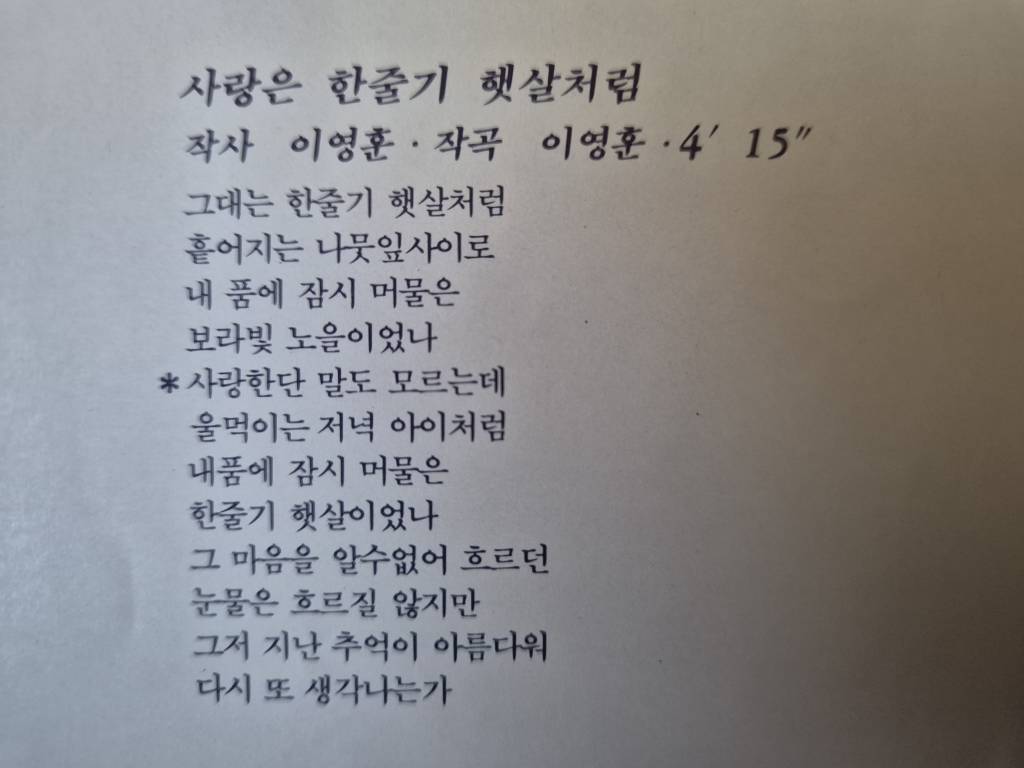 사랑은 한줄기 햇살처럼
작사 이영훈 · 작곡 이영훈 · 4′ 15″
그대는 한줄기 햇살처럼
흩어지는 나뭇잎사이로
내 품에 잠시 머물은
보라빛 노을이었나
*사랑한단 말도 모르는데
울먹이는 저녁 아이처럼
내품에 잠시 머물은
한줄기 햇살이었나
그 마음을 알수없어 흐르던
눈물은 흐르질 않지만
그저 지난 추억이 아름다워
다시 또 생각나는가